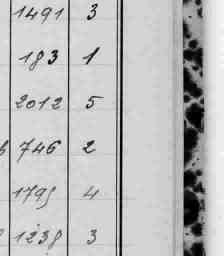 1491 3
183 1
2012 5
746 2
1795 4
1238 3